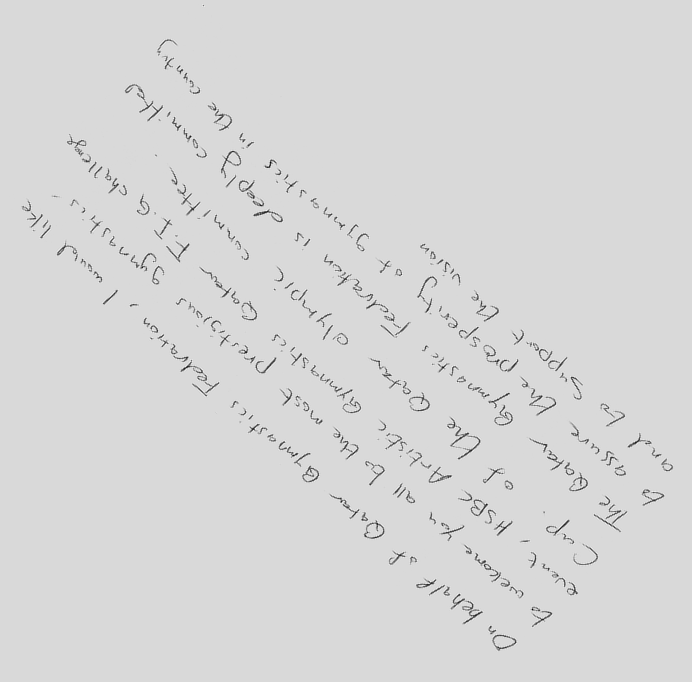 On behalf of Qatar Gymnastics Fedration, I would like
to welcome you all to the most prestigious gymnastics -
event, HSBC Artistic Gymnastics Qatar F.I.G challenge
Cup. of the Qatar Olympic committee.
The Qatar Gymnastics Fedration is deeply committed
to assure the prosperity of gymnastics in the country
and to support the vision